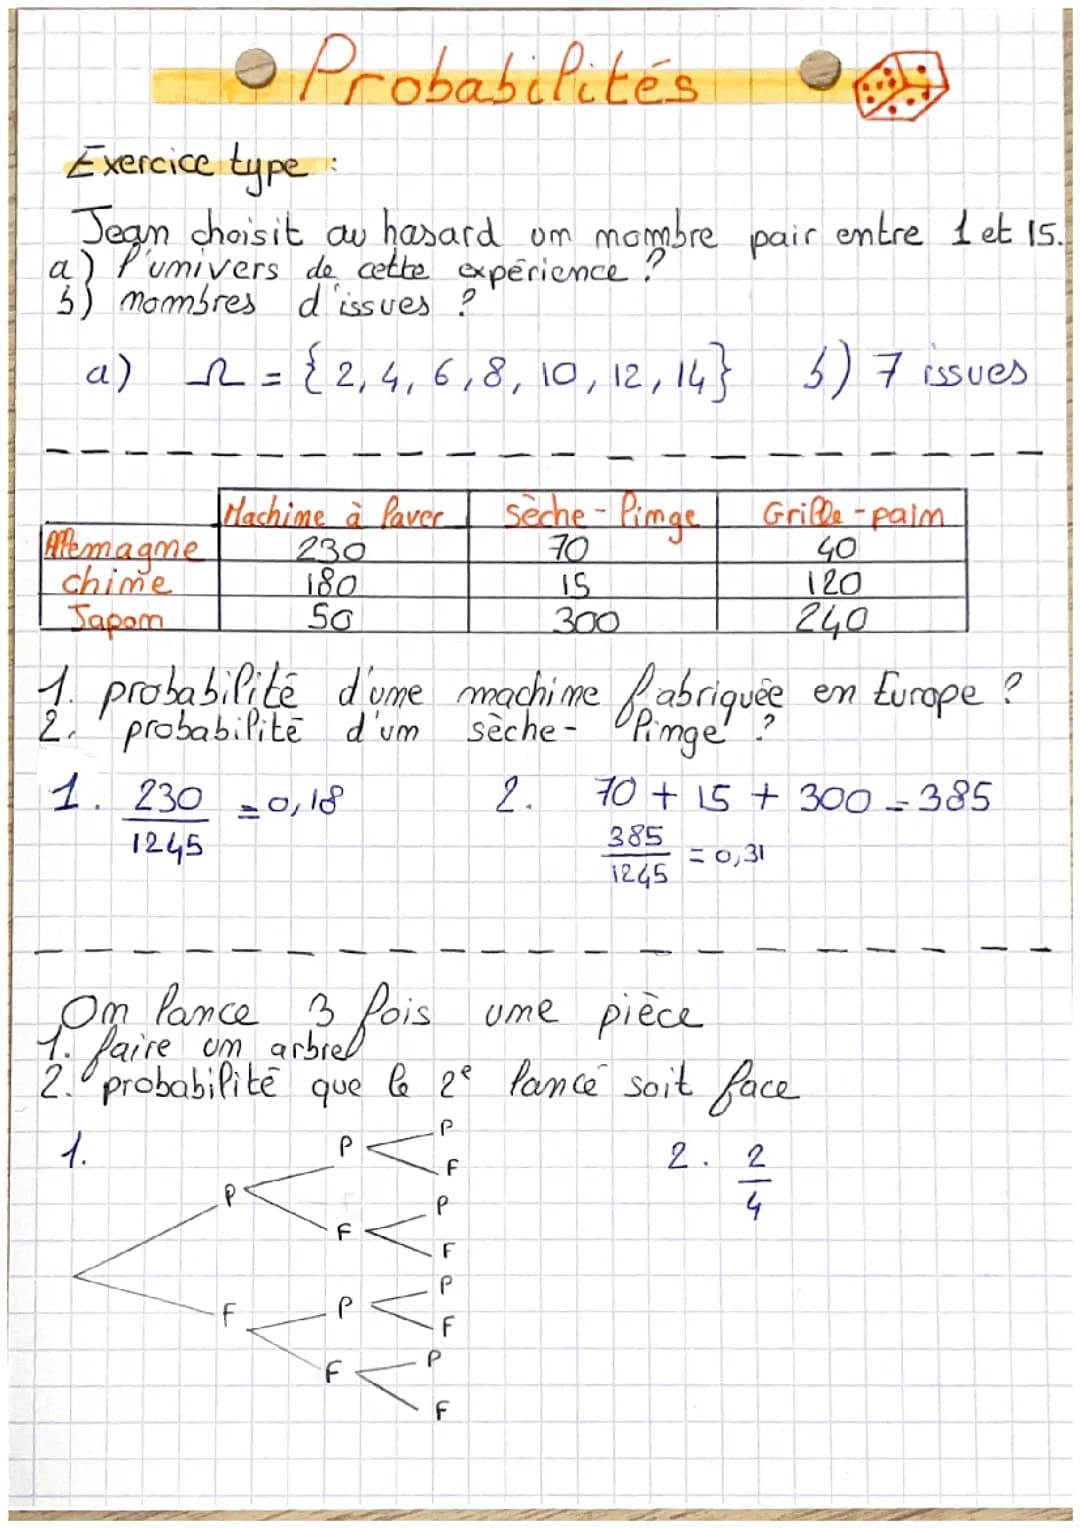 Probabilités
Exercice type :
Jean choisit au hasard un nombre pair entre 1 et 15.
a) l'univers de cette expérience ?
b) nombres d'issues ?
a) Ω = {2, 4, 6, 8, 10, 12, 14} b) 7 issues
Machine à laver sèche-linge Grille-pain
Allemagne 230 70 40
chine 180 15 120
Japon 50 300 240
1. probabilité d'une machine fabriquée en Europe ?
2. probabilité d'un sèche-linge ?
1. 230/1245 = 0,18 2. 70 + 15 + 300 = 385
385/1245 = 0,31
On lance 3 fois une pièce
1. faire un arbre
2. probabilité que le 2e lancé soit face
1. 2. 2/4
P
P
F
P
P
F
F
P
P
F
F
P
F
F